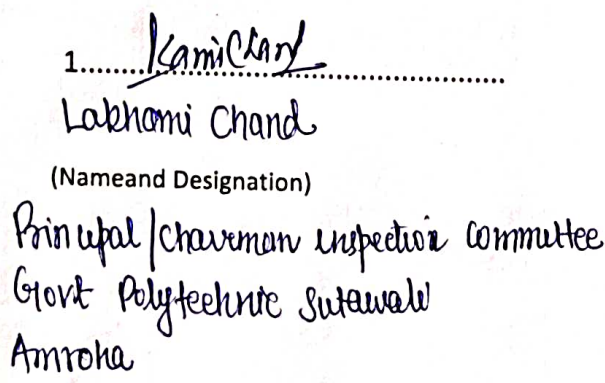 1.....................................................
Lakhami Chand
(Nameand Designation)
Principal/Chairman inspection committee
Govt Polytechnic Sutawali
Amroha